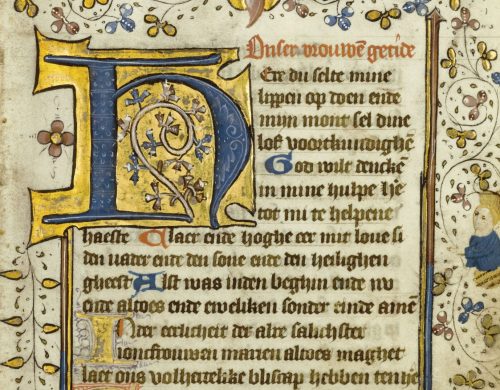 Onser vrouwē getide
Ere du selte mine
lippen op doen ende
mijn mont sel dine
lof voortkundighē
God wilt dencken̄
in mine hulpe he
tot mi te helpene
haeste Claer ende hoghe eer mit loue si
den uader ende den sone ende den heilighen
gheest Alst was inden beghin ende nv
ende altoes ende eweliken sonder einde amē
In der eerlicheit der alre salichster
ioncfrouwen marien altoes maghet
laet ons volherdelike bliscap hebben